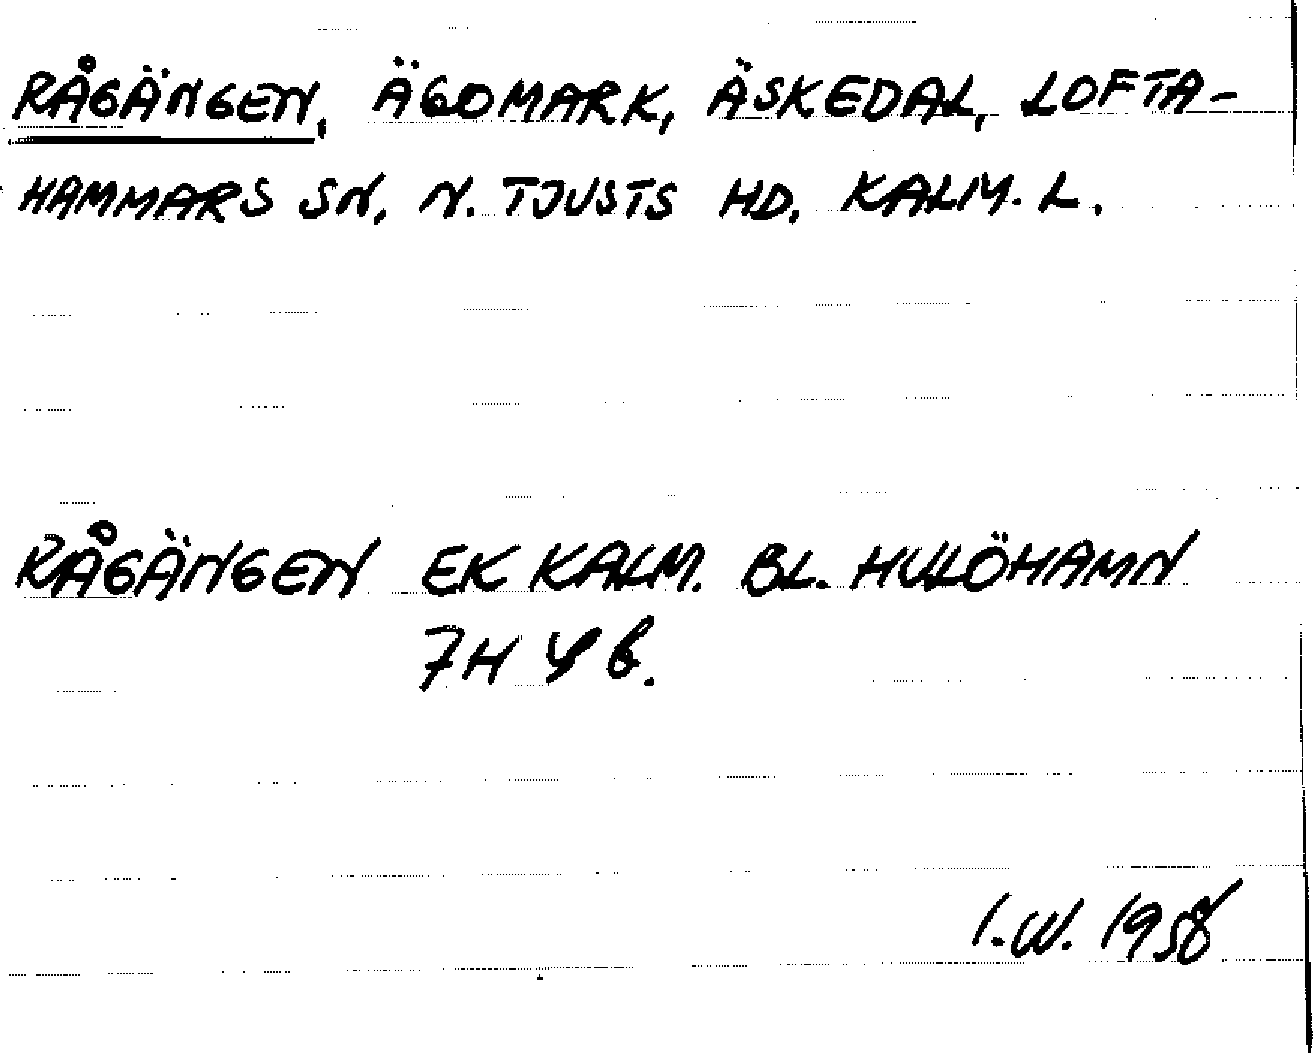 RÅGÄNGEN, ÄGOMARK, ÄSKEDAL, LOFTA-
HAMMARS SN, N. TJUSTS HD, KALM. L.
RÅGÄNGEN EK KALM. BL. HULÖHAMN
7H 4 b.
I.W. 1958